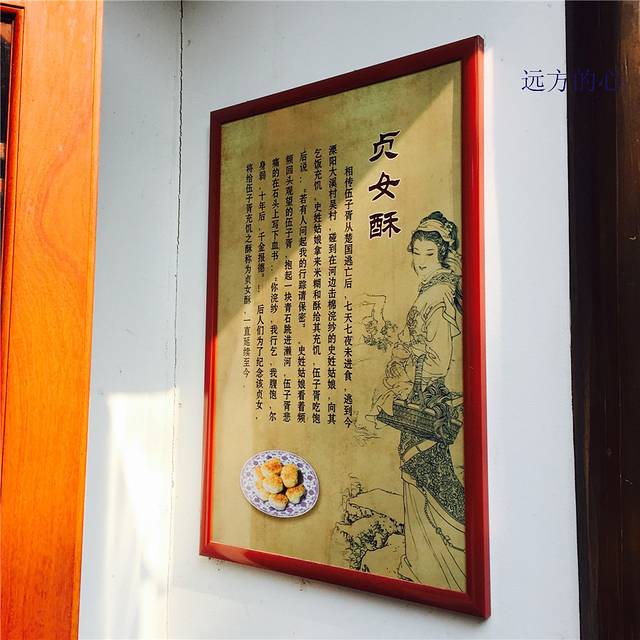 远方的心
贞女酥
相传伍子胥从楚国逃亡后，七天七夜未进食，逃到今
溧阳大溪村吴村，碰到在河边击棉浣纱的史姓姑娘，向其
乞饭充饥，史姓姑娘拿来米糊和酥给其充饥，伍子胥吃饱
后说：“若有人问起我的行踪请保密。”史姓姑娘看着频
频回头观望的伍子胥，抱起一块青石跳进濑河，伍子胥悲
痛的在石头上写下血书：“你浣纱，我行乞，我腹饱，尔
身溺，十年后，千金报德。”后人们为了纪念该贞女，
将给伍子胥充饥之酥称为贞女酥，一直延续至今。